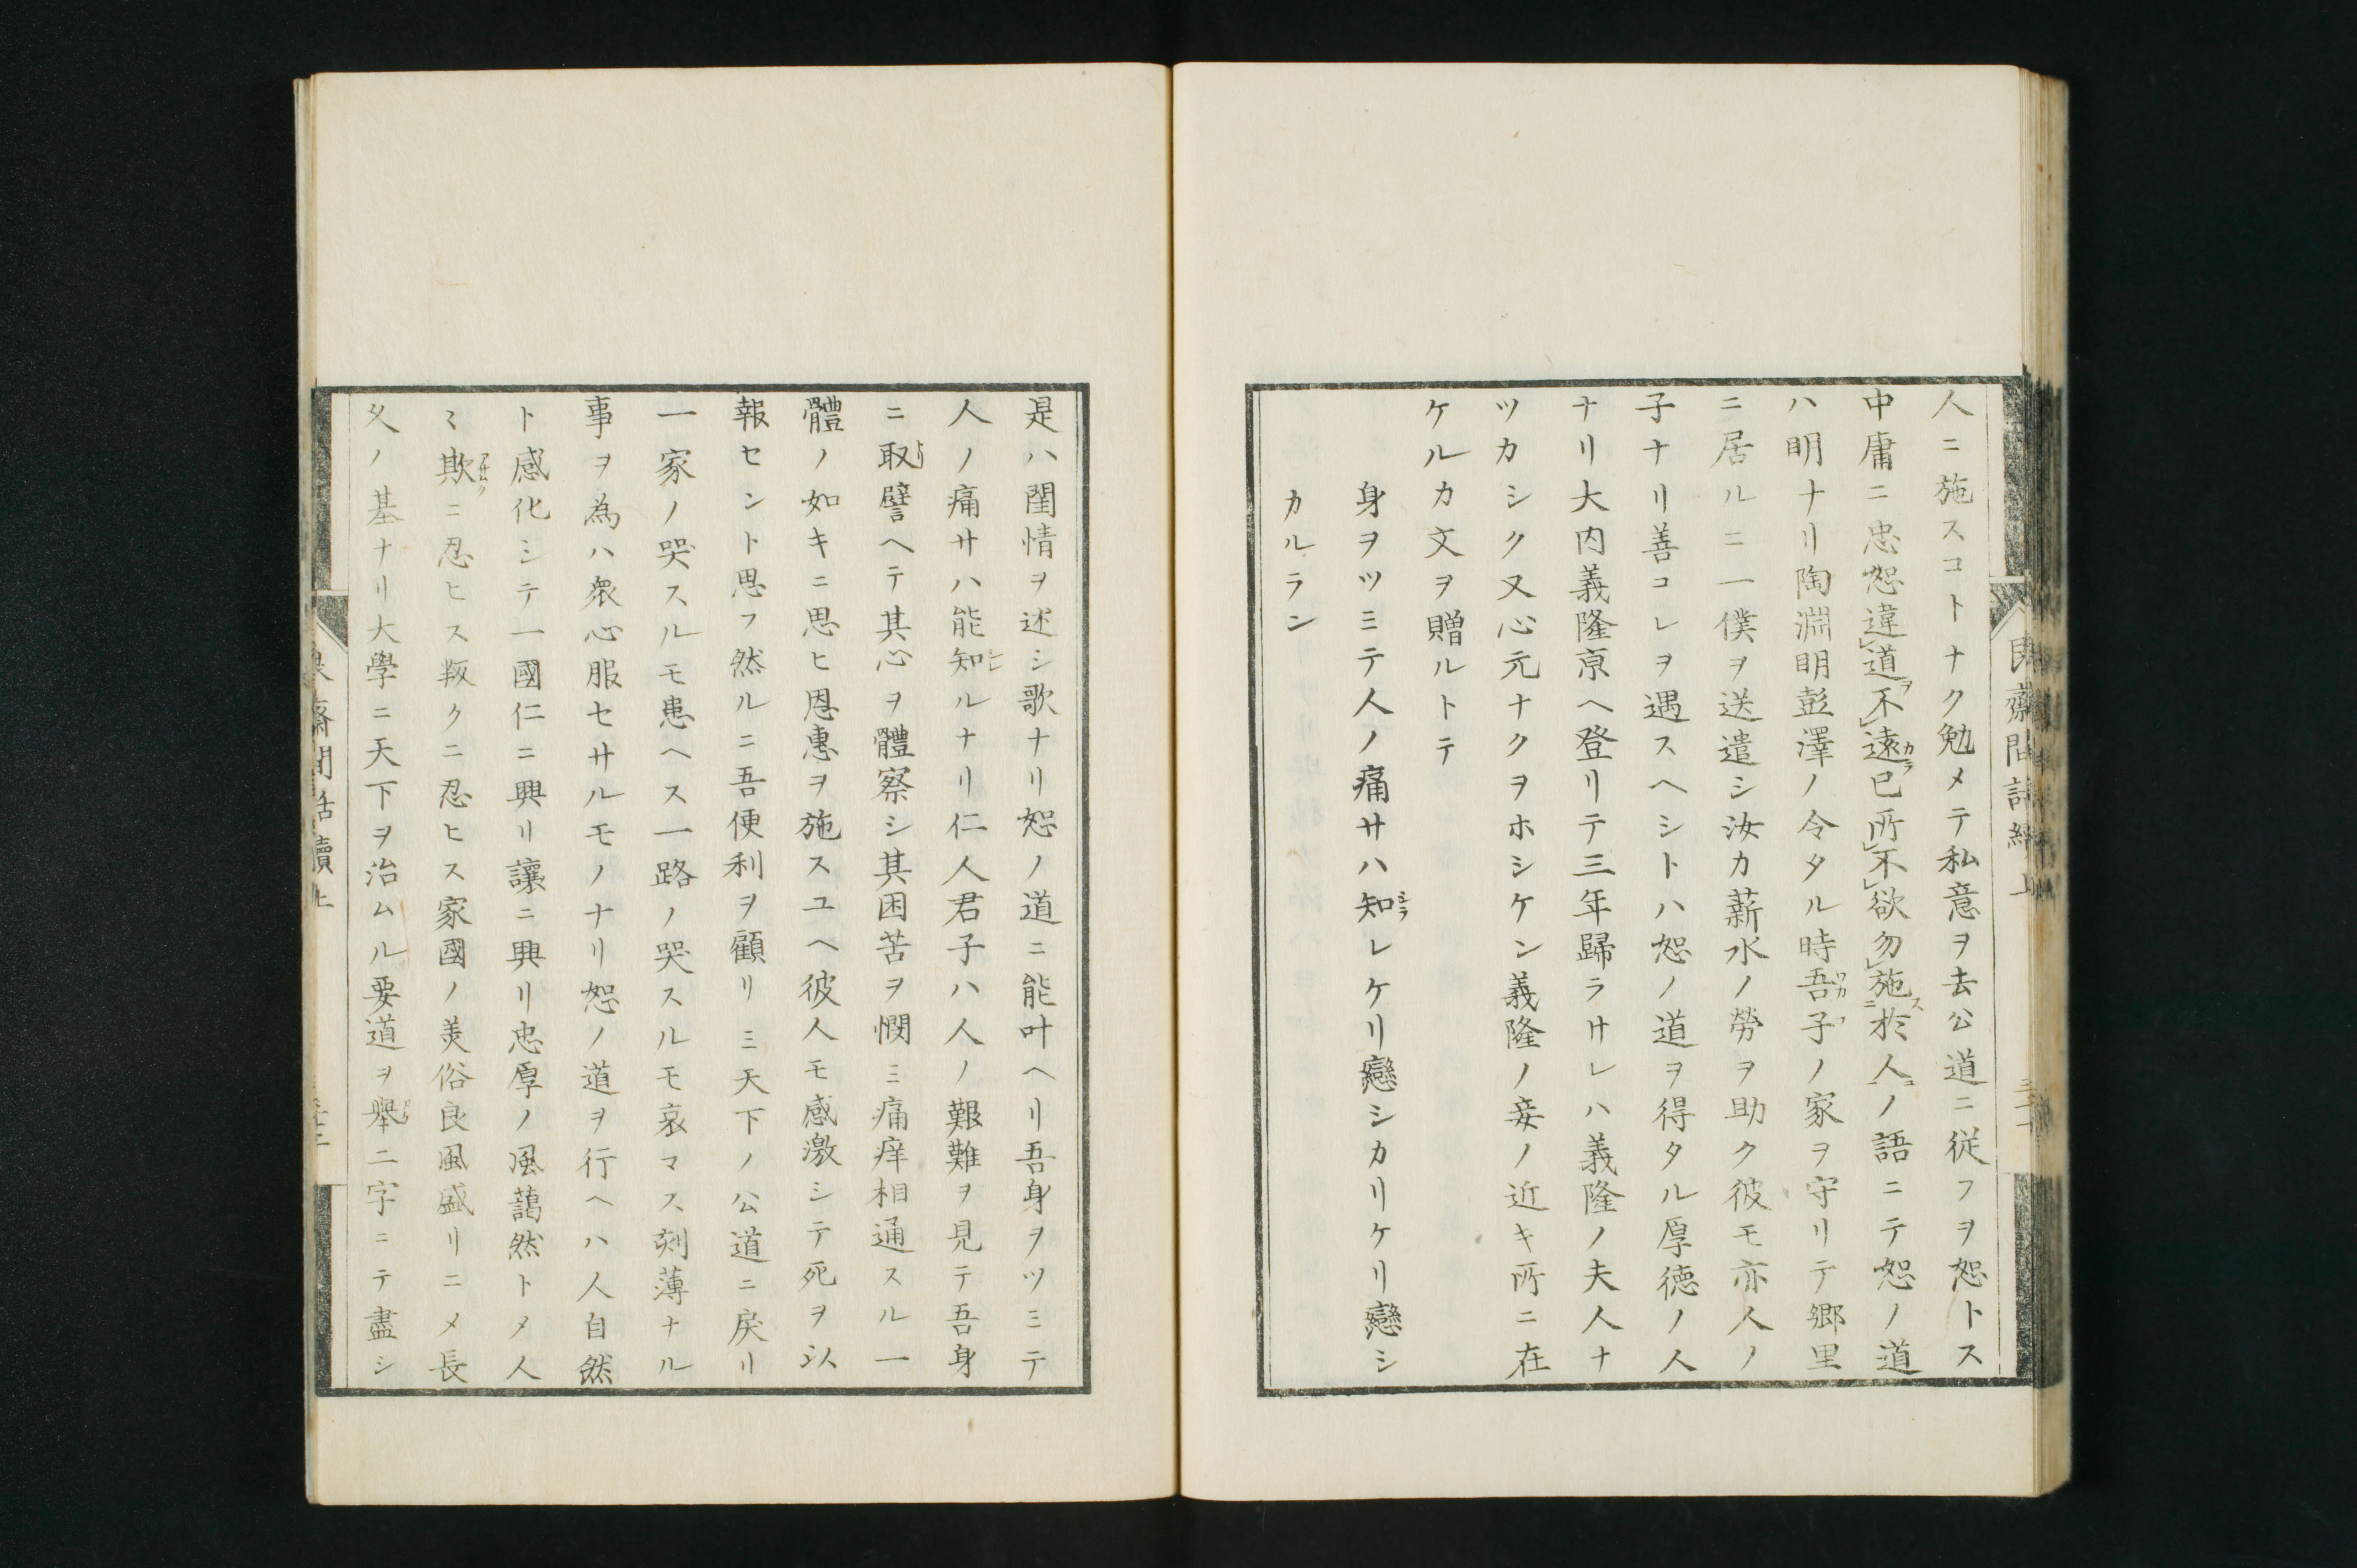 人ニ施スコトナク勉メテ私意ヲ去公道ニ従フヲ恕トス
中庸ニ忠恕違道ヲ不遠カラ已所不欲勿施スニ於人ニノ語ニテ恕ノ道
ハ明ナリ陶淵明彭澤ノ令タル時吾ワカ子コノ家ヲ守リテ郷里
ニ居ルニ一僕ヲ送遣シ汝カ薪水ノ勞ヲ助ク彼モ亦人ノ
子ナリ善コレヲ遇スヘシトハ恕ノ道ヲ得タル厚徳ノ人
ナリ大内義隆京ヘ登リテ三年歸ラサレハ義隆ノ夫人ナ
ツカシク又心元ナクヲホシケン義隆ノ妾ノ近キ所ニ在
ケルカ文ヲ贈ルトテ
身ヲツミテ人ノ痛サハ知シラレケリ戀シカリケリ戀シ
カルラン
是ハ閨情ヲ述シ歌ナリ恕ノ道ニ能叶ヘリ吾身ヲツミテ
人ノ痛サハ能知シルナリ仁人君子ハ人ノ艱難ヲ見テ吾身
ニ取とり譬ヘテ其心ヲ體察シ其困苦ヲ憫ミ痛痒相通スル一
體ノ如キニ思ヒ恩惠ヲ施スユヘ彼人モ感激シテ死ヲ以
報セント思フ然ルニ吾便利ヲ顧リミ天下ノ公道ニ戻リ
一家ノ哭スルモ患ヘス一路ノ哭スルモ哀マス刻薄ナル
事ヲ為ハ衆心服セサルモノナリ恕ノ道ヲ行ヘハ人自然
ト感化シテ一國仁ニ興リ讓ニ興リ忠厚ノ風藹然トメ人
ミ欺アサムクニ忍ヒス叛クニ忍ヒス家國ノ美俗良風盛リニメ長
久ノ基ナリ大學ニ天下ヲ治ムル要道ヲ舉二字ニテ盡シ
良齋閒話續上